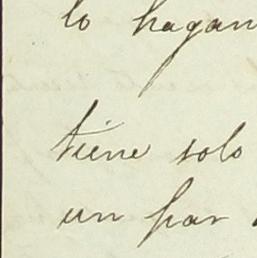 lo hagan
tiene solo
un par